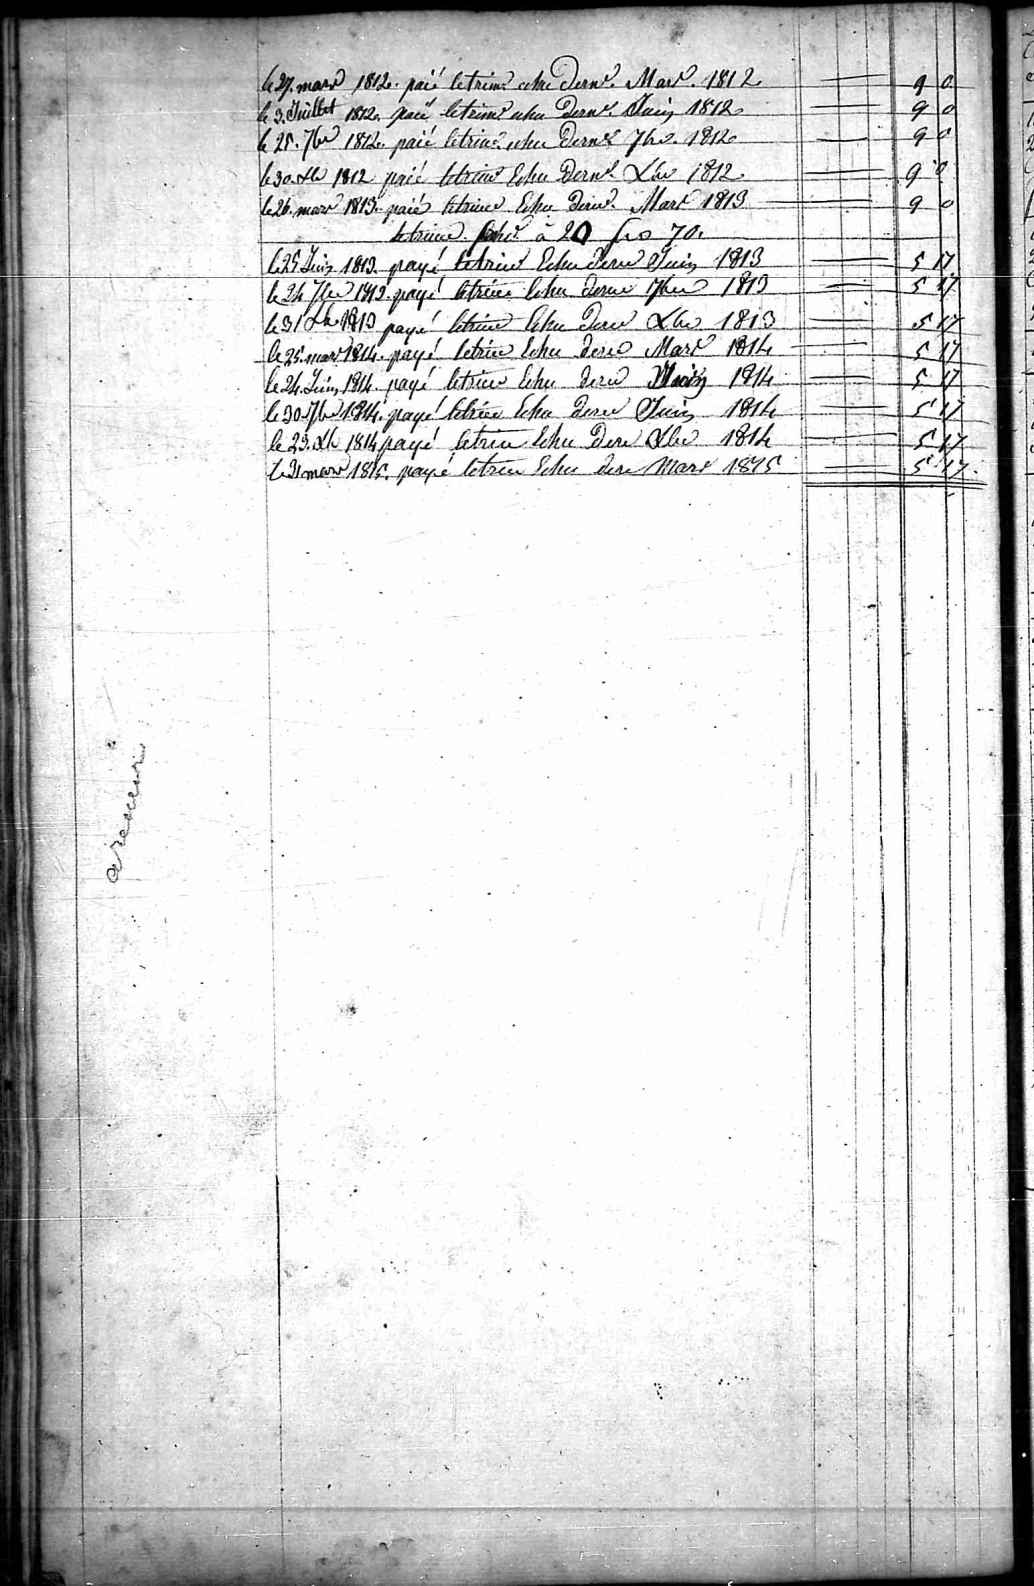 le 27. mars 1812. paié le trim.e echu dern.r Mars. 1812 9 0
le 3. Juillet 1812. paié le trim.e echu Dern.r Juin 1812 9 0
le 25. 7bre 1812. paié le trim.e echu dern.r 7bre. 1812 9 0
le 30 Xbre 1812 paié le trim.e Echu Dern.r Xbre 1812 9 0
le 26. mars 1813. paié le trime Echu Dern.r Mars 1813 9 0
le trime à 20 70.
le 25 Juin 1813. payé le trime Echu derne Juin 1813 5 17
le 24 7bre 1813. payé le trime Echu derne 7bre 1813 5 17
le 31 Xbre 1813 payé le trime Echu derne Xbre 1813 5 17
le 25. mars 1814. payé le trime Echu derne Mars 1814 5 17
le 24. Juin 1814. payé le trime Echu derne 1814 5 17
le 30. 7bre 1814. payé le trime Echu derne Juin 1814 5 17
le 23. Xbre 1814 payé le trime Echu Derne Xbre 1814 5 17
le 31 mars 1815. payé le trime Echu derne Mars 1815 5 17.